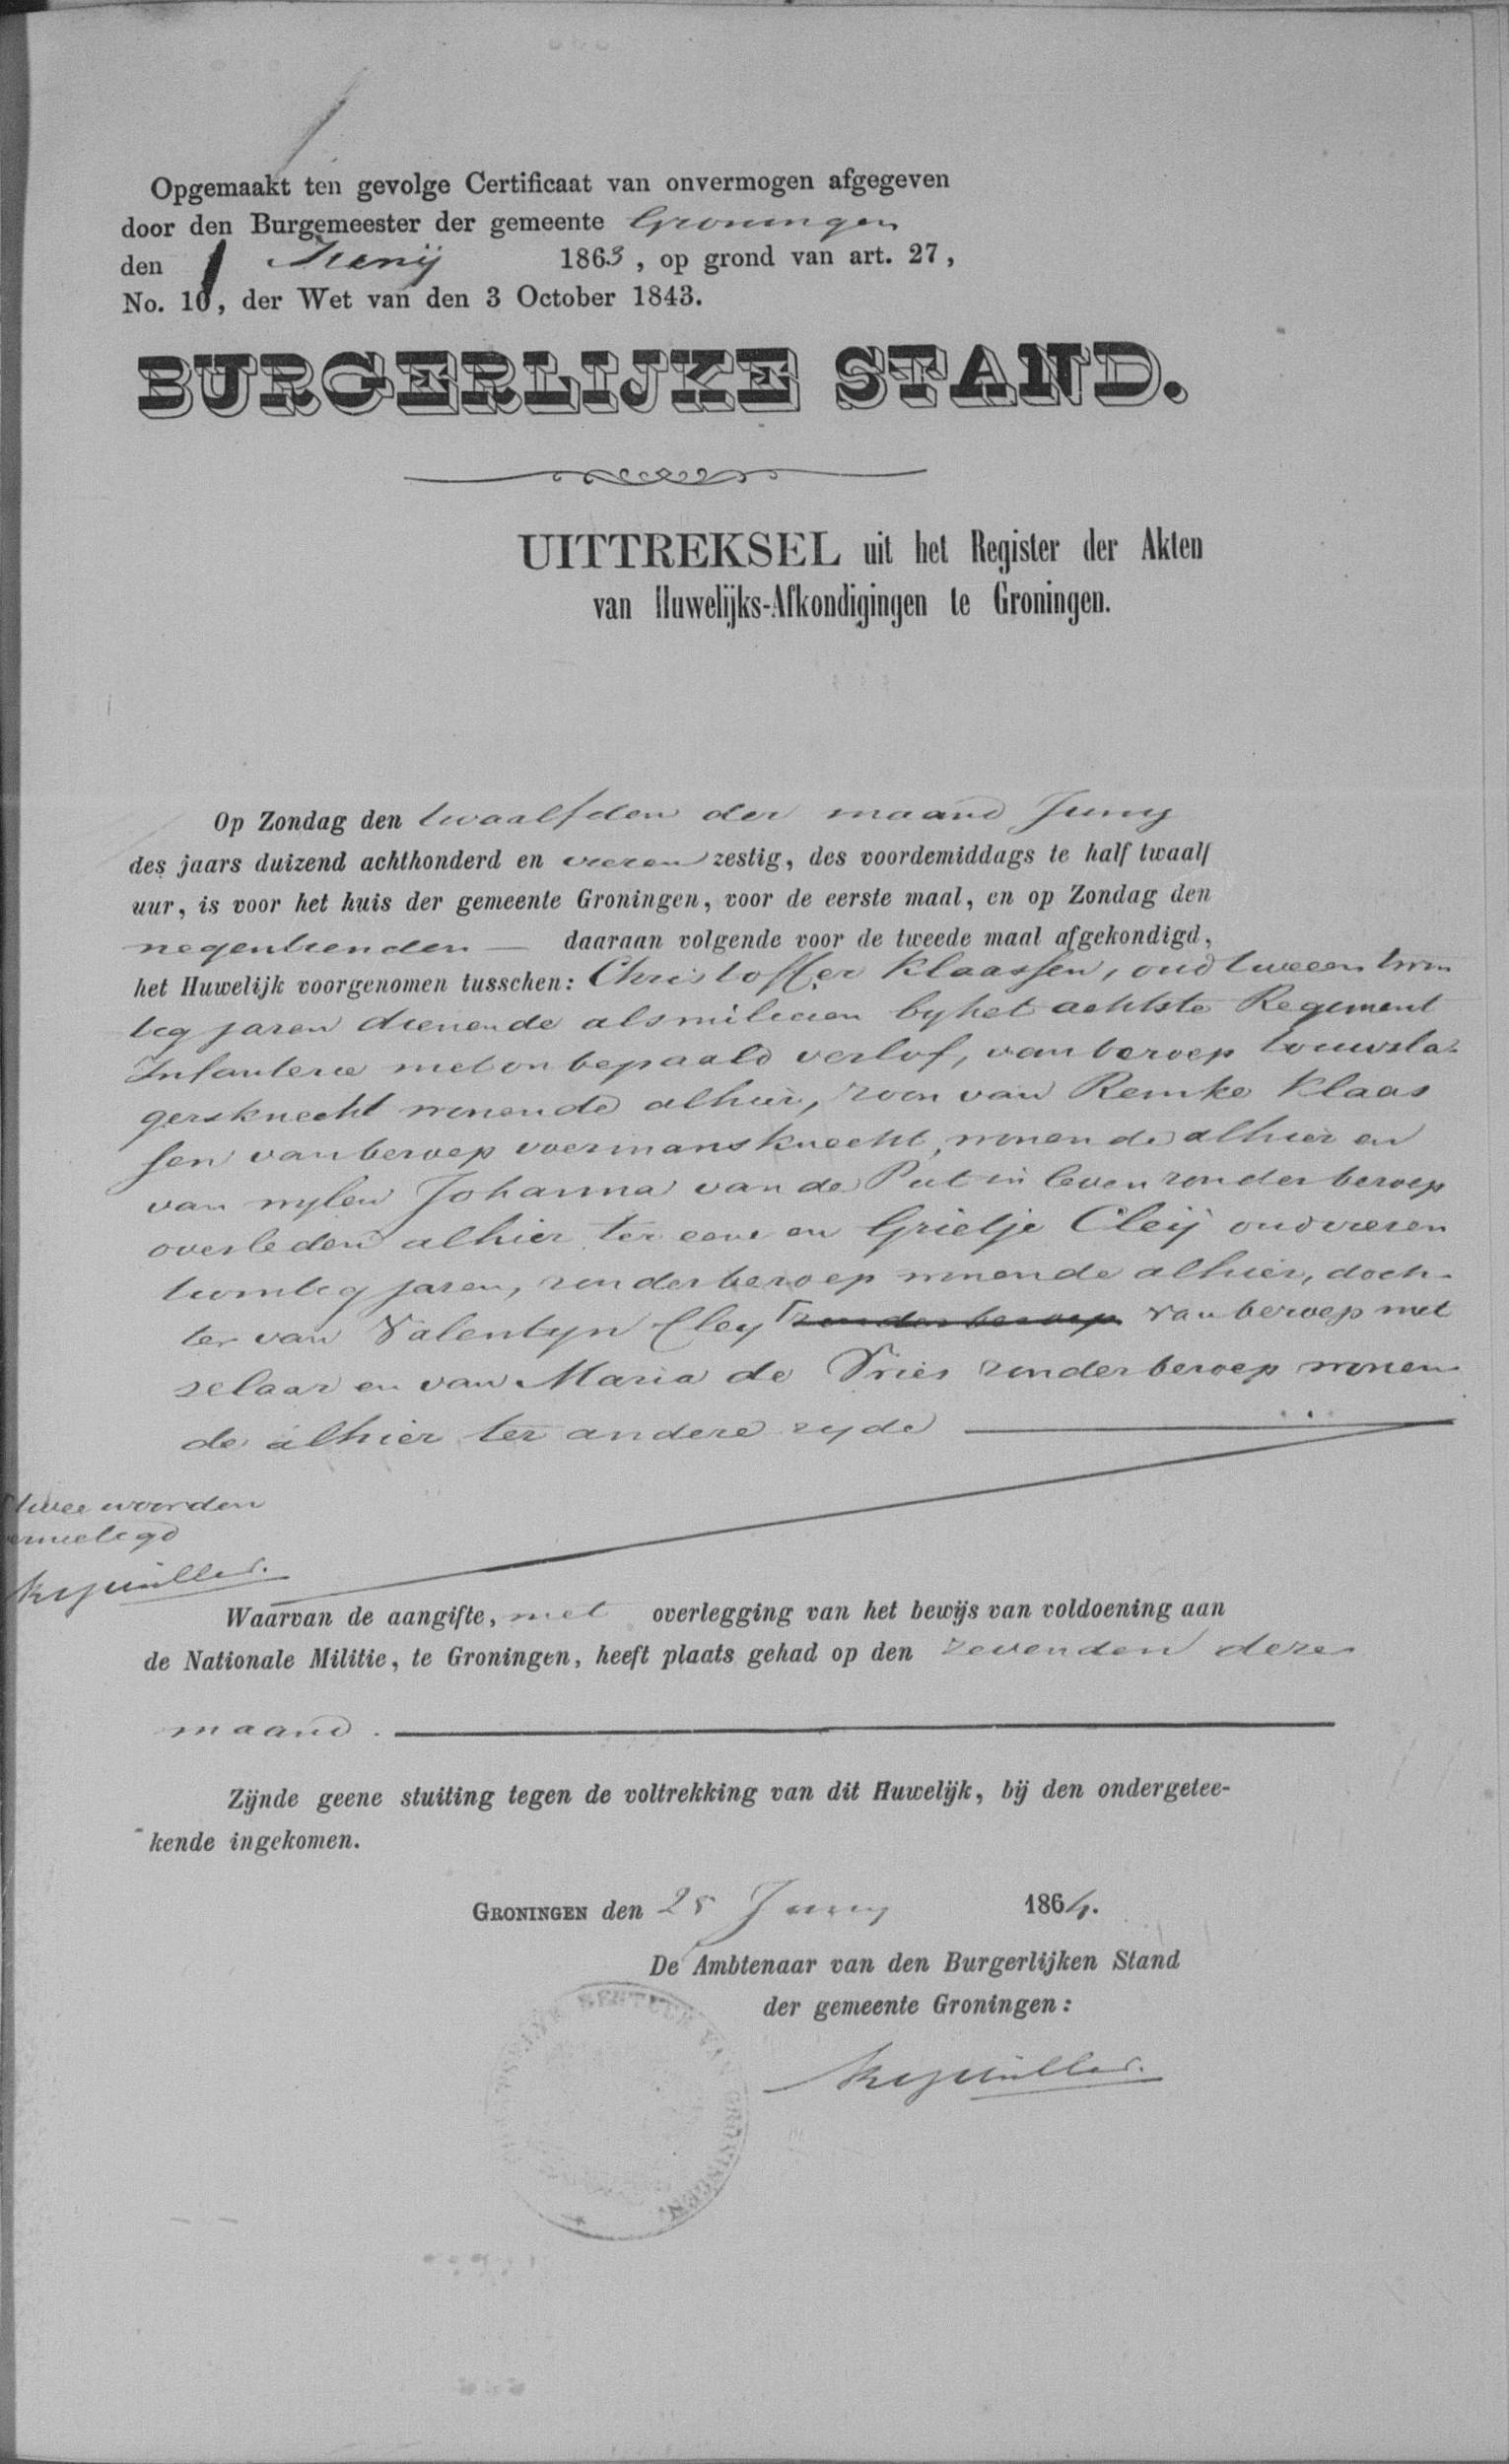 Opgemaakt ten gevolge Certificaat van onvermogen afgegeven
door den Burgemeester der gemeente Groningen
den 1 Junij 1863, op grond van art. 27,
No. 10, der Wet van den 3 October 1843.
BURGERLIJKE STAND.
UITTREKSEL uit het Register der Akten
van Huwelijks-Afkondigingen te Groningen.
Op Zondag den twaalfden der maand Juny
des jaars duizend achthonderd en vieren zestig, des voordemiddags te half twaalf
uur, is voor het huis der gemeente Groningen, voor de eerste maal, en op Zondag den
negentienden — daaraan volgende voor de tweede maal afgekondigd,
het Huwelijk voorgenomen tusschen: Christoffer Klaassen, oud tweeen twin
tig jaren dienende als milicien by het achtste Regiment
Infanterie met onbepaald verlof, van beroep touwsla-
gersknecht wonende alhier, zoon van Remke Klaas
sen van beroep voermansknecht, wonende alhier en
van wylen Johanna van de Put in leven zonder beroep
overleden alhier ter eene en Grietje Cleij oud vieren
twintig jaren, zonder beroep wonende alhier, doch-
ter van Valentyn Cley zonder beroep van beroep met
selaar en van Maria de Vries zonder beroep wonen
de alhier ter andere zyde
twee woorden
vernietigd
Waarvan de aangifte, met overlegging van het bewijs van voldoening aan
de Nationale Militie, te Groningen, heeft plaats gehad op den zevenden dezer
maand.
Zijnde geene stuiting tegen de voltrekking van dit Huwelijk, bij den ondergetee-
kende ingekomen.
GRONINGEN den 25 Juny 1864.
De Ambtenaar van den Burgerlijken Stand
der gemeente Groningen:
BESTUUR VAN GRONINGEN